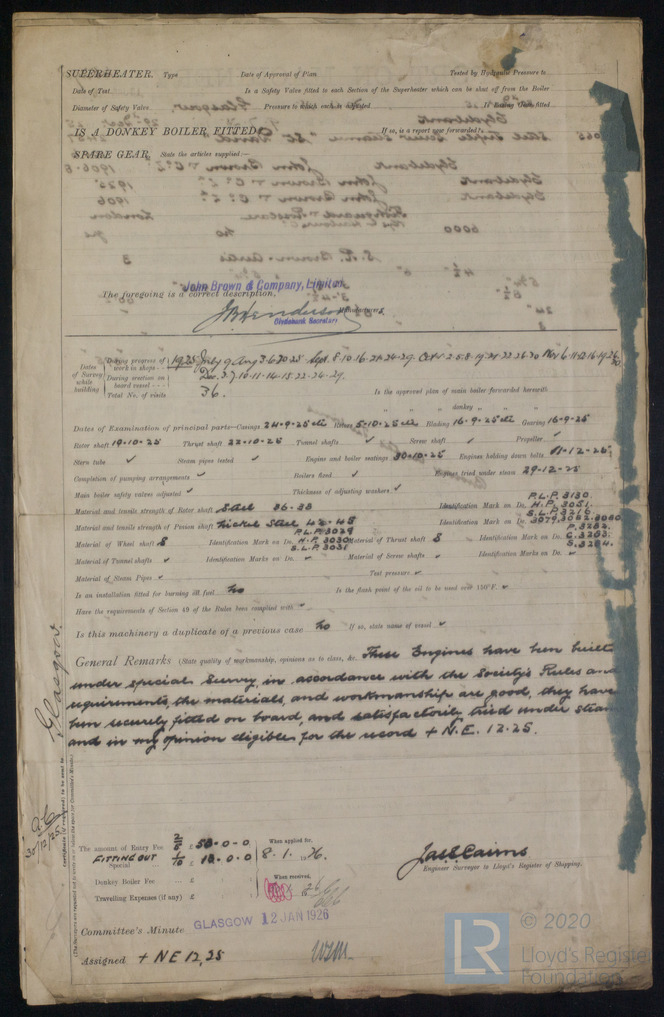 SUPERHEATER. Type Date of Approval of Plan Tested by Hydraulic Pressure to
Date of Test Is a Safety Valve fitted to each Section of the Superheater which can be shut off from the Boiler
Diameter of Safety Valve Pressure to which each is adjusted Is Easing Gear fitted
IS A DONKEY BOILER FITTED? If so, is a report now forwarded?
SPARE GEAR. State the articles supplied:—
John Brown & Company, Limited
The foregoing is a correct description,
JB Henderson Manufacturer.
Clydebank Secretary
Dates of Survey while building
During progress of work in shops - - 1925 July 9 Aug 3.6.7.0.25 Sept. 8.10.16.21.24.29. Oct 1.2.5.8.19.21.22.26.30 Nov 6.11.12.16.19.26.30
During erection on board vessel - - - Dec. 3.7.10.11.14.15.22.24.29.
Total No. of visits 36. Is the approved plan of main boiler forwarded herewith
" " donkey " "
Dates of Examination of principal parts—Casings 24-9-25 etc Rotors 5-10-25 etc Blading 16-9-25 etc Gearing 16-9-25
Rotor shaft 19-10-25 Thrust shaft 22-10-25 Tunnel shafts ✓ Screw shaft ✓ Propeller ✓
Stern tube ✓ Steam pipes tested ✓ Engine and boiler seatings 30-10-25 Engines holding down bolts 11-12-25
Completion of pumping arrangements ✓ Boilers fixed ✓ Engines tried under steam 29-12-25
Main boiler safety valves adjusted ✓ Thickness of adjusting washers ✓
Material and tensile strength of Rotor shaft Steel 36-38 Identification Mark on Do. P.L.P. 3130. H.P. 3051. S.L.P. 3216
Material and tensile strength of Pinion shaft Nickel Steel 42-45 Identification Mark on Do. 3079.3082.3080
Material of Wheel shaft S Identification Mark on Do. P.L.P. 3029 H.P. 3030 S.L.P. 3031 Material of Thrust shaft S Identification Mark on Do. P. 3282. C. 3283. S. 3284.
Material of Tunnel shafts ✓ Identification Marks on Do. ✓ Material of Screw shafts ✓ Identification Marks on Do. ✓
Material of Steam Pipes ✓ Test pressure ✓
Is an installation fitted for burning oil fuel No Is the flash point of the oil to be used over 150°F. ✓
Have the requirements of Section 49 of the Rules been complied with ✓
Is this machinery a duplicate of a previous case No If so, state name of vessel ✓
General Remarks (State quality of workmanship, opinions as to class, &c. These Engines have been built
under special Survey, in accordance with the Society's Rules and
requirements, the materials, and workmanship are good, they have
been securely fitted on board, and satisfactorily tried under steam
and in my opinion eligible for the record + N.E. 12.25.
Glasgow.
30/12/25
The amount of Entry Fee £ 50-0-0 When applied for,
FITTING OUT Special £ 10.0.0 8.1.26.
Donkey Boiler Fee ... £ When received,
Travelling Expenses (if any) £
Jas Cairns
Engineer Surveyor to Lloyd's Register of Shipping.
Committee's Minute GLASGOW 12 JAN 1926
Assigned + NE 12,25
LR
© 2020
Lloyd's Register
Foundation